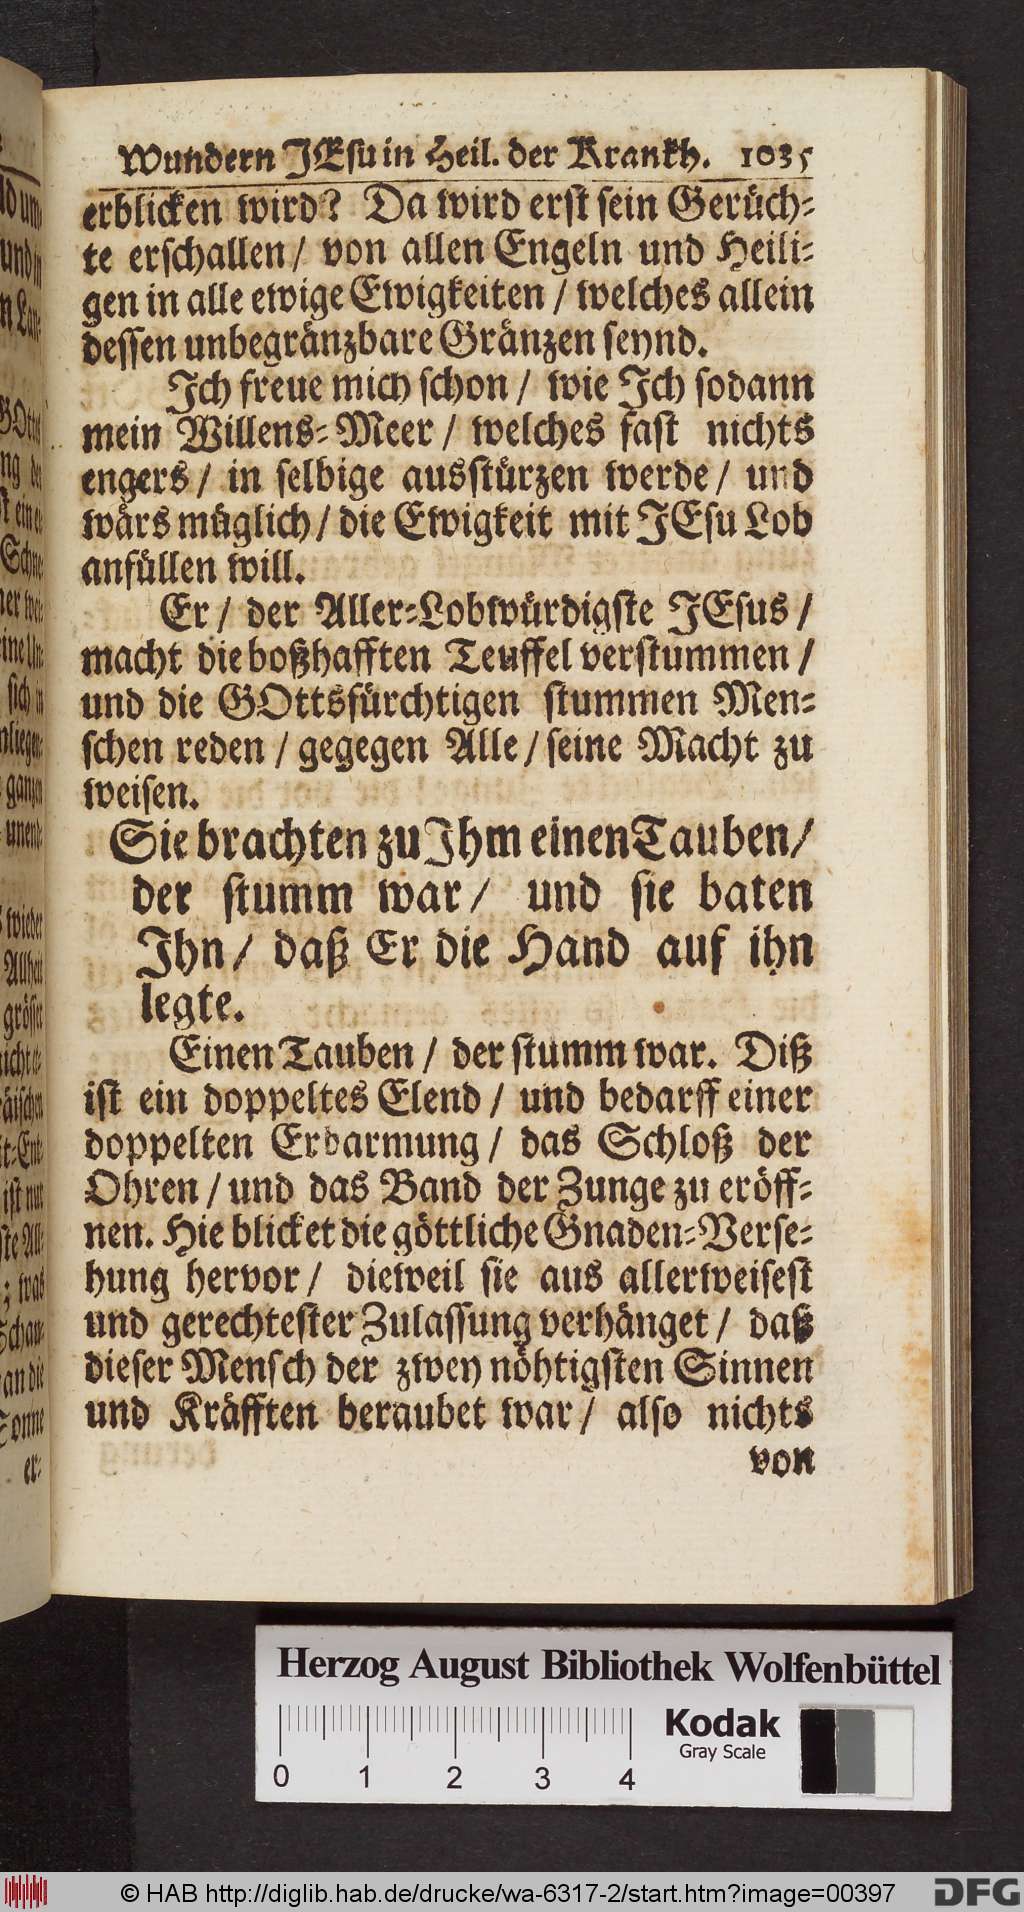 Wundern JEsu in Heil. der Krankh. 1035
erblicken wird? Da wird erst sein Gerüch-
te erschallen/ von allen Engeln und Heili-
gen in alle ewige Ewigkeiten / welches allein
dessen unbegränzbare Gränzen seynd.
Ich freue mich schon / wie Ich sodann
mein Willens-Meer / welches fast nichts
engers / in selbige ausstürzen werde / und
wärs müglich / die Ewigkeit mit JEsu Lob
anfüllen will.
Er / der Aller-Lobwürdigste JEsus /
macht die boßhafften Teuffel verstummen /
und die GOttsfürchtigen stummen Men-
schen reden / gegegen Alle / seine Macht zu
weisen.
Sie brachten zu Ihm einen Tauben/
der stumm war/ und sie baten
Ihn/ daß Er die Hand auf ihn
legte.
Einen Tauben / der stumm war. Diß
ist ein doppeltes Elend / und bedarff einer
doppelten Erbarmung / das Schloß der
Ohren / und das Band der Zunge zu eröff-
nen. Hie blicket die göttliche Gnaden-Verse-
hung hervor / dieweil sie aus allerweisest
und gerechtester Zulassung verhänget / daß
dieser Mensch der zwey nöhtigsten Sinnen
und Kräfften beraubet war / also nichts
von
Herzog August Bibliothek Wolfenbüttel
Kodak
Gray Scale
0 1 2 3 4
© HAB http://diglib.hab.de/drucke/wa-6317-2/start.htm?image=00397
DFG